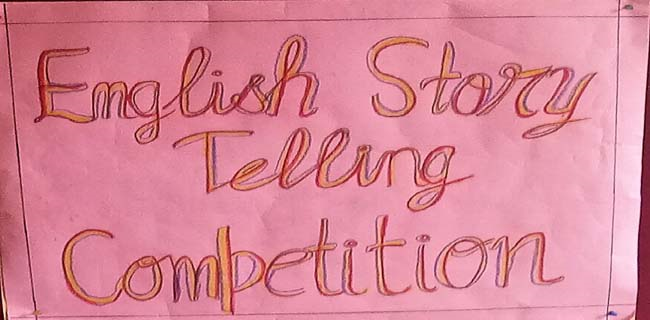 English Story
Telling
Competition